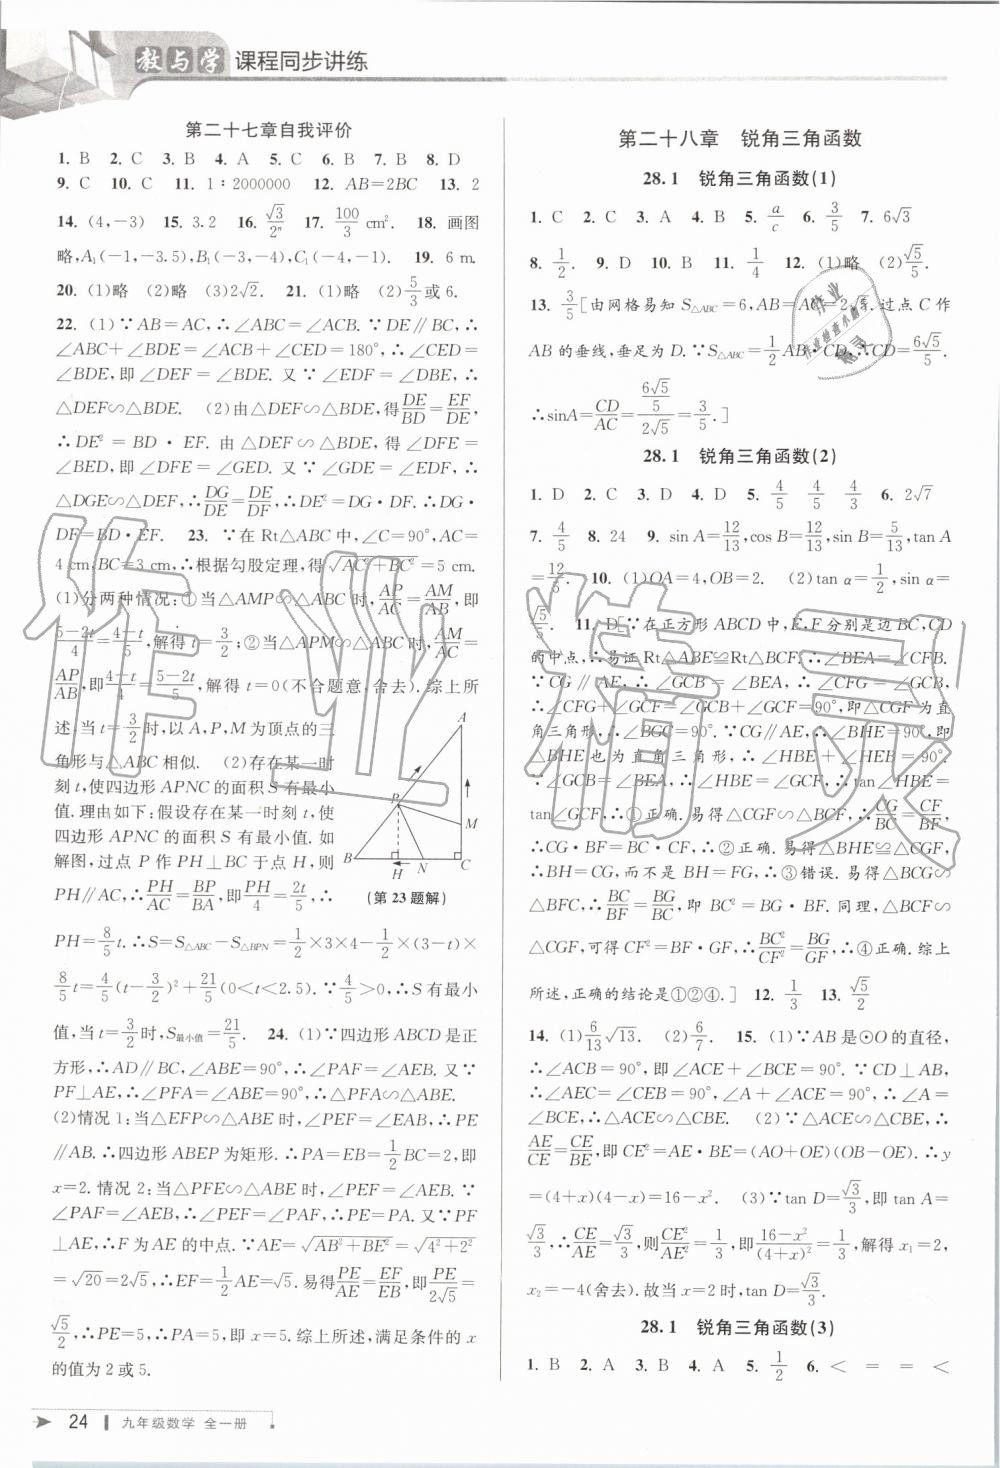 教与学 课程同步讲练
第二十七章自我评价
1. B 2. C 3. B 4. A 5. C 6. B 7. B 8. D
9. C 10. C 11. 1∶2000000 12. AB=2BC 13. 2
14. (4,-3) 15. 3.2 16. √3/2ⁿ 17. 100/3 cm². 18. 画图
略,A₁(-1,-3.5),B₁(-3,-4),C₁(-4,-1). 19. 6 m.
20. (1)略 (2)略 (3)2√2. 21. (1)略 (2)5/3或6.
22. (1)∵AB=AC,∴∠ABC=∠ACB.∵DE∥BC,∴
∠ABC+∠BDE=∠ACB+∠CED=180°,∴∠CED=
∠BDE,即∠DEF=∠BDE. 又∵∠EDF=∠DBE,∴
△DEF∽△BDE. (2)由△DEF∽△BDE,得DE/BD=EF/DE,
∴DE²=BD·EF. 由△DEF∽△BDE,得∠DFE=
∠BED,即∠DFE=∠GED. 又∵∠GDE=∠EDF,∴
△DGE∽△DEF,∴DG/DE=DE/DF,∴DE²=DG·DF.∴DG·
DF=BD·EF. 23. ∵在Rt△ABC中,∠C=90°,AC=
4 cm,BC=3 cm,∴根据勾股定理,得√(AC²+BC²)=5 cm.
(1)分两种情况:①当△AMP∽△ABC时,AP/AC=AM/AB,即
(5-2t)/4=(4-t)/5,解得t=3/2;②当△APM∽△ABC时,AM/AC=
AP/AB,即(4-t)/4=(5-2t)/5,解得t=0(不合题意,舍去).综上所
述,当t=3/2时,以A,P,M为顶点的三
角形与△ABC相似. (2)存在某一时
刻t,使四边形APNC的面积S有最小
值.理由如下:假设存在某一时刻t,使
四边形APNC的面积S有最小值.如
解图,过点P作PH⊥BC于点H,则
PH∥AC,∴PH/AC=BP/BA,即PH/4=2t/5,∴
A
P
M
B
H
N
C
(第23题解)
PH=8/5t.∴S=S△ABC-S△BPN=1/2×3×4-1/2×(3-t)×
8/5t=4/5(t-3/2)²+21/5(0<t<2.5).∵4/5>0,∴S有最小
值,当t=3/2时,S最小值=21/5. 24. (1)∵四边形ABCD是正
方形,∴AD∥BC,∠ABE=90°,∴∠PAF=∠AEB.又∵
PF⊥AE,∴∠PFA=∠ABE=90°,∴△PFA∽△ABE.
(2)情况1:当△EFP∽△ABE时,∠PEF=∠EAB,∴PE
∥AB.∴四边形ABEP为矩形.∴PA=EB=1/2BC=2,即
x=2.情况2:当△PFE∽△ABE时,∠PEF=∠AEB.∵
∠PAF=∠AEB,∴∠PEF=∠PAF,∴PE=PA.又∵PF
⊥AE,∴F为AE的中点.∵AE=√(AB²+BE²)=√(4²+2²)
=√20=2√5,∴EF=1/2AE=√5.易得PE/AE=EF/EB,即PE/2√5=
√5/2,∴PE=5,∴PA=5,即x=5.综上所述,满足条件的x
的值为2或5.
第二十八章 锐角三角函数
28.1 锐角三角函数(1)
1. C 2. C 3. A 4. B 5. a/c 6. 3/5 7. 6√3
8. 1/2. 9. D 10. B 11. 1/4 12. (1)略 (2)√5/5.
13. 3/5[由网格易知S△ABC=6,AB=AC=2√5.过点C作
AB的垂线,垂足为D.∵S△ABC=1/2AB·CD,∴CD=6√5/5.
∴sinA=CD/AC=(6√5/5)/(2√5)=3/5.]
28.1 锐角三角函数(2)
1. D 2. C 3. D 4. A 5. 4/5 4/5 4/3 6. 2√7
7. 4/5 8. 24 9. sin A=12/13,cos B=12/13,sin B=5/13,tan A
=12/5. 10. (1)OA=4,OB=2. (2)tan α=1/2,sin α=
√5/5. 11. D[∵在正方形ABCD中,E,F分别是边BC,CD
的中点,∴易证Rt△ABE≌Rt△BCF.∴∠BEA=∠CFB.
∵CG∥AE,∴∠GCB=∠BEA,∴∠CFG=∠GCB,
∴∠CFG+∠GCF=∠GCB+∠GCF=90°,即△CGF为直
角三角形,∴∠BGC=90°.∵CG∥AE,∴∠BHE=90°,即
△BHE也为直角三角形,∴∠HBE+∠HEB=90°.
∵∠GCB=∠BEA,∴∠HBE=∠GCF,∴tan∠HBE=
tan∠GCF,∴①正确.易得△CGF∽△BCF,∴CG/BC=CF/BF,
∴CG·BF=BC·CF,∴②正确.易得△BHE≌△CGF,
∴BH=CG,而不是BH=FG,∴③错误.易得△BCG∽
△BFC,∴BC/BF=BG/BC,即BC²=BG·BF.同理,△BCF∽
△CGF,可得CF²=BF·GF,∴BC²/CF²=BG/GF,∴④正确.综上
所述,正确的结论是①②④.] 12. 1/3 13. √5/2
14. (1)6/13√13. (2)6/7. 15. (1)∵AB是⊙O的直径,
∴∠ACB=90°,即∠ACE+∠BCE=90°.∵CD⊥AB,
∴∠AEC=∠CEB=90°,∠A+∠ACE=90°,∴∠A=
∠BCE,∴△ACE∽△CBE. (2)∵△ACE∽△CBE,∴
AE/CE=CE/BE,即CE²=AE·BE=(AO+OE)(OB-OE).∴y
=(4+x)(4-x)=16-x². (3)∵tan D=√3/3,即tan A=
√3/3,∴CE/AE=√3/3,则CE²/AE²=1/3,即(16-x²)/(4+x)²=1/3,解得x₁=2,
x₂=-4(舍去).故当x=2时,tan D=√3/3.
28.1 锐角三角函数(3)
1. B 2. A 3. B 4. A 5. 1/2 6. < = = <
24 九年级数学 全一册
作业精灵